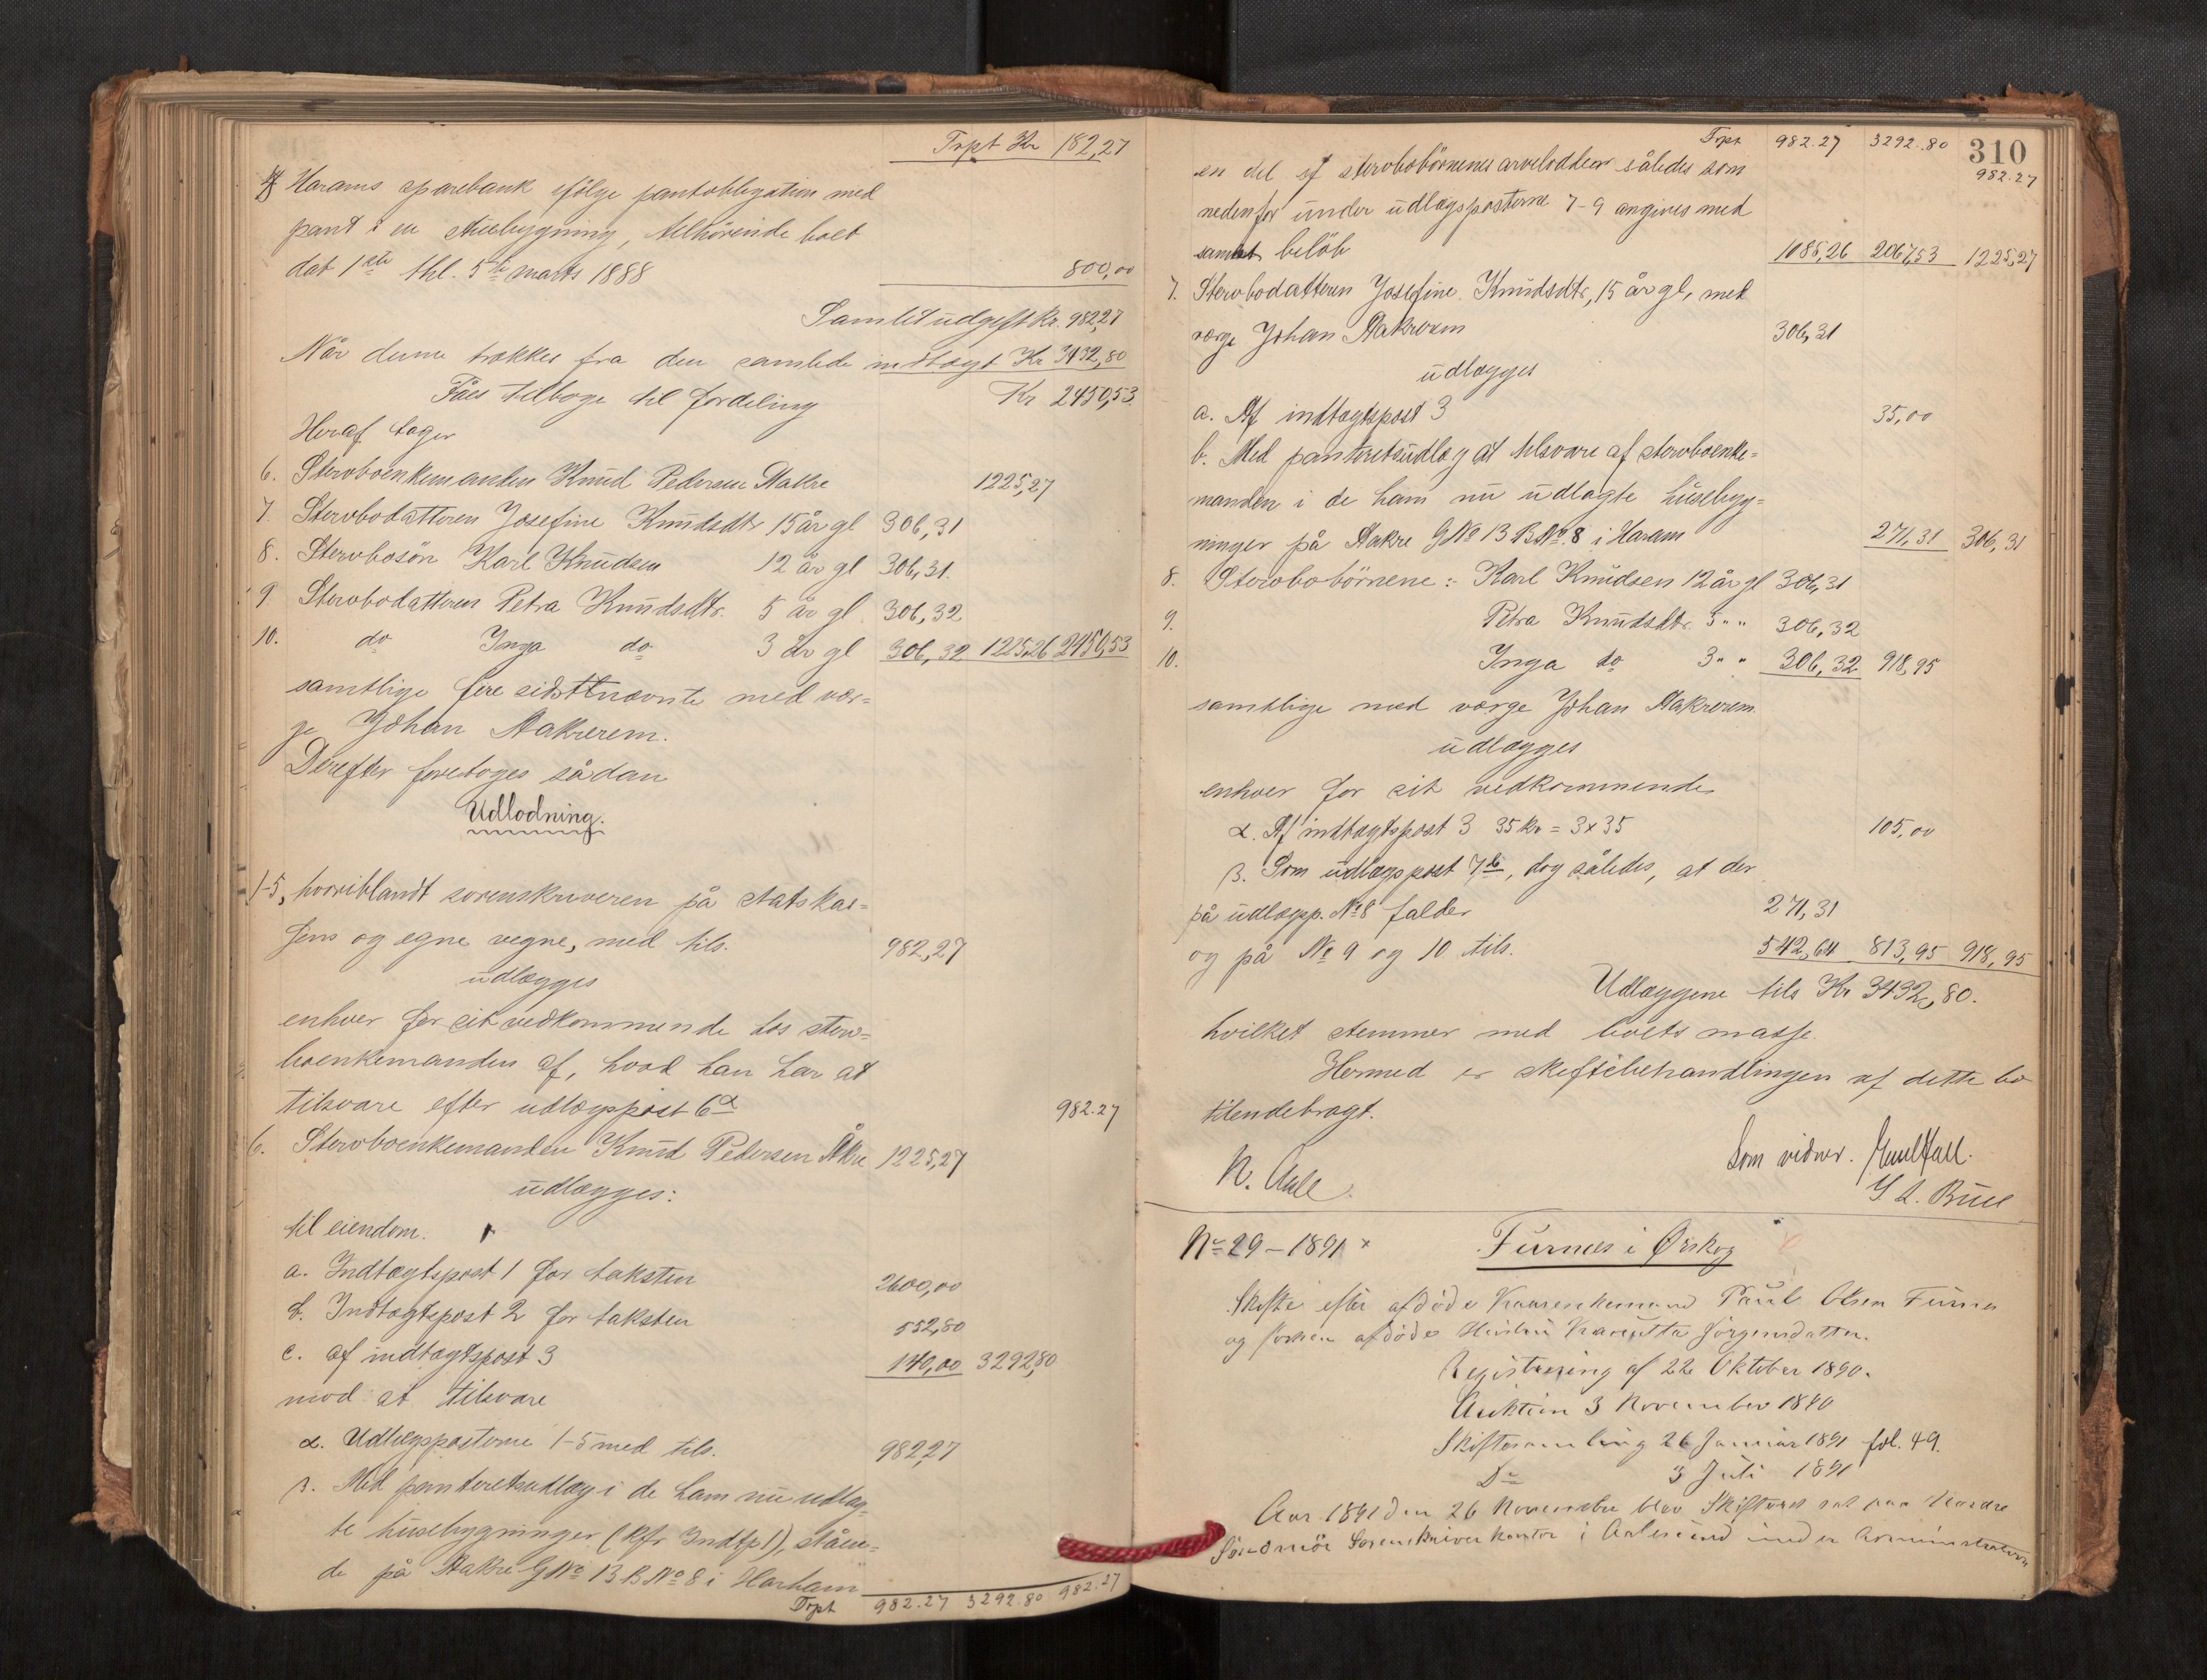 Trpt Kr 182,27
Harams sparebank ifölge pantobligation med
pant i en stuebygning, tilhörende boet
dat 1ste thl. 5te marts 1888 800,00
Samlet udgift Kr. 982,27
Når denne trækkes fra den samlede indtægt Kr 3432,80
Fåes tilbage til fordeling Kr 2450,53
Heraf tager
6. Stervboenkemanden Knud Pedersen Aakre 1225,27
7. Stervbodatteren Josefine Knudsdtr 15 år gl 306,31
8. Stervbosön Karl Knudsen 12 år gl 306,31.
9. Stervbodatteren Petra Knudsdtr. 5 år gl 306,32
10. do Inga do 3 år gl 306,32 1225,26 2450,53
samtlige fire sidstnævnte med vær=
ge Johan Aakrerem.
Derefter foretoges sådan
Udlodning.
1-5, hvoriblandt sorenskriveren på statskas=
sens og egne vegne, med tils. 982,27
udlægges
enhver for sit vedkommende hos sterv=
boenkemanden af, hvad han har at
tilsvare efter udlægspost 6α 982.27
6. Stervboenkemanden Knud Pedersen Åkre 1225,27
udlægges:
til eiendom.
a. Indtægtspost 1 for taksten 2600,00
b. Indtægtspost 2 for taksten 552,80
c. af indtægtspost 3 140,00 3292,80
mod at tilsvare
α. Udlægsposterne 1-5 med tils. 982,27
β. Med panteretsudlæg i de ham nu udlag=
te husebygninger (kfr Indtp 1), ståen=
de på Aakre GNo 13 BNo 8 i Harham
Trpt 982.27 3292.80 982.27
310
Trpt 982.27 3292.80 982.27
en del af stervbobörnenes arvelodder således som
nedenfor under udlægsposterne 7-9 angives med
samlet belöb 1085,26 2067,53 1225,27
7. Stervbodatteren Josefine Knudsdtr, 15 år gl, med
værge Johan Aakrerem 306,31
udlægges
a. Af indtægtspost 3 35,00
b. Med panteretsudlæg at tilsvare af stervboenke=
manden i de ham nu udlagte husebyg=
ninger på Aakre GNo 13 BNo. 8 i Haram 271,31 306,31
8. Stervbobörnene: Karl Knudsen 12 år gl 306,31
9. Petra Knudsdtr. 5 " " 306,32
10. Inga do 3 " " 306,32 918,95
samtlige med værge Johan Aakrerem
udlægges
enhver for sit vedkommende
α. Af indtægtspost 3 35 kr = 3x35 105,00
β. Som udlægspost 7b, dog således, at der
på udlægsp. No 8 falder 271,31
og på No 9 og 10 tils. 542,64 813,95 918,95
Udlæggene tils Kr 3432,80.
hvilket stemmer med boets masse.
Hermed er skiftebehandlingen af dette bo
tilendebragt.
N. Aall. Som vidner.
No 29 – 1891 x Furnes i Ørskog
Skifte efter afdøde Kaarenkemand Paul Olsen Furnes
og forhen afdøde Hustru Jørgensdatter.
Registrering af 22 Oktober 1890.
Auktion 3 November 1890
Skiftesamling 26 Januar 1891 fol. 49.
Do 3 Juli 1891
Aar 1891 den 26 November blev Skifteret sat paa Nordre
Søndmör Sorenskriverkontor i Aalesund under Administration